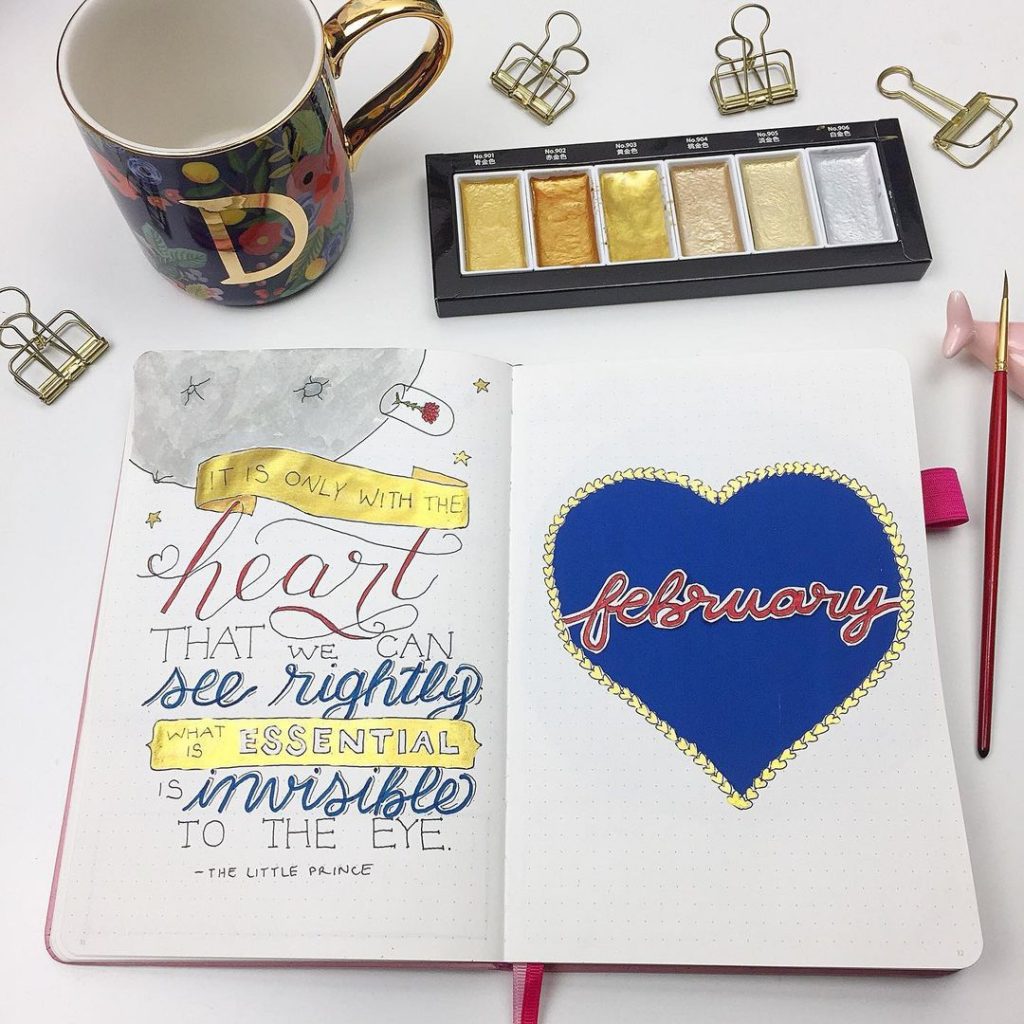 D
No.901 No.902 No.903 No.904 No.905 No.906
青金色 赤金色 黄金色 桃金色 浅金色 白金色
IT IS ONLY WITH THE
heart
THAT WE CAN
see rightly
WHAT IS ESSENTIAL
IS invisible
TO THE EYE.
-THE LITTLE PRINCE
february